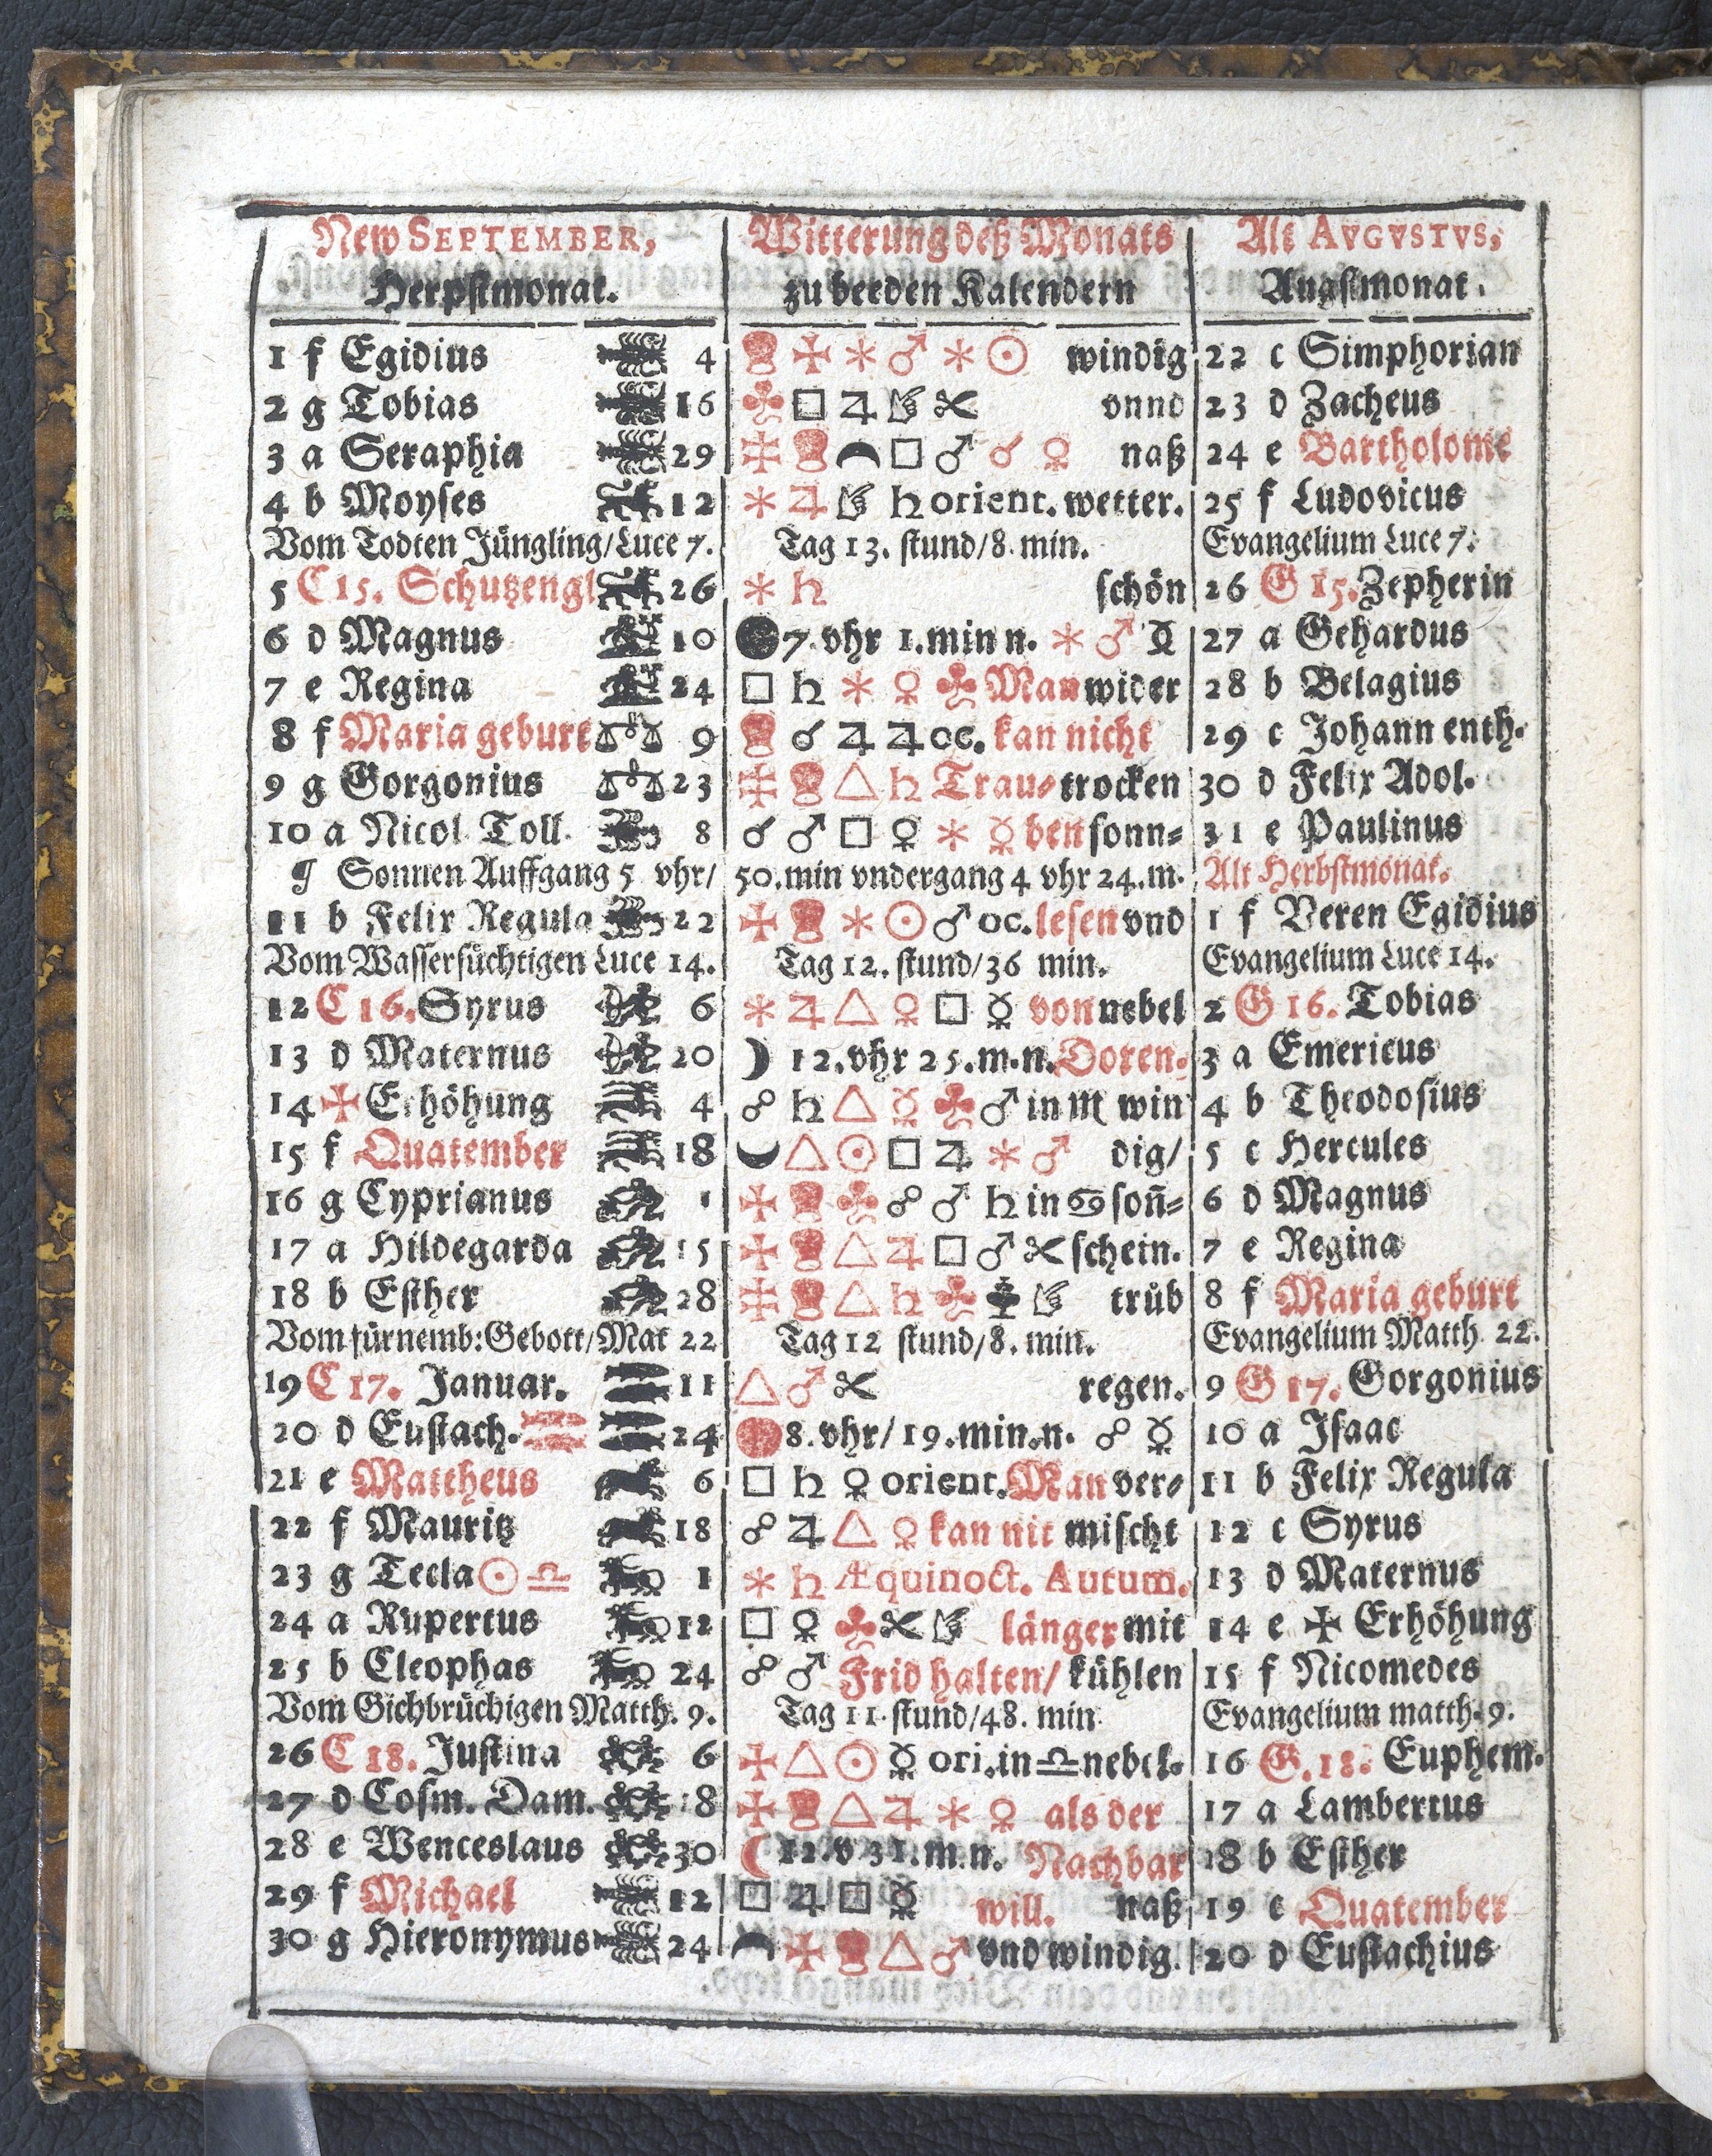 New SEPTEMBER, Witterung deß Monats Alt AVGVSTVS,
Herpstmonat. zu beeden Kalendern Augstmonat.
1 f Egidius 4 ✠ * ♂ * ☉ windig 22 c Simphorian
2 g Tobias 16 ♣ □ ♃ ✂ vnnd 23 d Zacheus
3 a Seraphia 29 □ ♂ ☌ ♀ naß 24 e Bartholome
4 b Moyses 12 * ♃ ♄ orient. wetter. 25 f Ludovicus
Vom Todten Jüngling/Luce 7. Tag 13. stund/8. min. Evangelium Luce 7.
5 C 15. Schutzengl 26 * ♄ schön 26 G 15. Zepherin
6 d Magnus 10 ● 7. vhr 1. min n. * ♂ ☿ 27 a Gehardus
7 e Regina 24 □ ♄ * ♀ ♣ Man wider 28 b Belagius
8 f Maria geburt 9 ☌ ♃ ♃ oc. kan nicht 29 c Johann enth.
9 g Gorgonius 23 △ ♄ Trau- trocken 30 d Felix Adol.
10 a Nicol Toll. 8 ☌ ♂ □ ♀ * ☿ ben sonn- 31 e Paulinus
¶ Sonnen Auffgang 5 vhr/ 50. min vndergang 4 vhr 24. m. Alt Herbstmonat.
11 b Felix Regula 22 ✠ * ☉ ♂ oc. lesen vnd 1 f Veren Egidius
Vom Wassersüchtigen Luce 14. Tag 12. stund/36 min. Evangelium Luce 14.
12 C 16. Syrus 6 * ♃ △ ♀ □ ☿ von nebel 2 G 16. Tobias
13 d Maternus 20 ☽ 12. vhr 25. m. n. Doren- 3 a Emericus
14 ✠ Erhöhung 4 ☍ ♄ △ ☿ ♣ ♂ in ♏ win 4 b Theodosius
15 f Quatember 18 △ ☉ □ ♃ * ♂ dig/ 5 c Hercules
16 g Cyprianus 1 ✠ ♣ ☍ ♂ ♄ in ♋ soñ- 6 d Magnus
17 a Hildegarda 15 ✠ △ ♃ □ ♂ ✂ schein. 7 e Regina
18 b Esther 28 △ ♄ ♣ trüb 8 f Maria geburt
Vom fürnemb: Gebott/Mat 22 Tag 12 stund/8. min. Evangelium Matth. 22.
19 C 17. Januar. 11 △ ♂ ✂ regen. 9 G 17. Gorgonius
20 d Eustach. 24 8. vhr/19. min. n. ☍ ☿ 10 a Isaac
21 e Mattheus 6 □ ♄ ♀ orient. Man ver- 11 b Felix Regula
22 f Mauritz 18 ☍ ♃ △ ♀ kan nit mischt 12 c Syrus
23 g Tecla ☉ ♎ 1 * ♄ Æquinoct. Autum. 13 d Maternus
24 a Rupertus 12 □ ♀ ♣ ✂ länger mit 14 e ✠ Erhöhung
25 b Cleophas 24 ☍ ♂ Frid halten/ kühlen 15 f Nicomedes
Vom Gichbrüchigen Matth. 9. Tag 11. stund/48. min. Evangelium matth. 9.
26 C 18. Justina 6 ✠ △ ☉ ☿ ori. in ♎ nebel. 16 G. 18. Euphem.
27 d Cosm. Dam. 18 ✠ △ ♃ * ♀ als der 17 a Lambertus
28 e Wenceslaus 30 ☾ 12. v 31. m. n. Nachbar 18 b Esther
29 f Michael 12 □ ♃ □ ☿ will. naß 19 c Quatember
30 g Hieronymus 24 ✠ △ ♂ vnd windig. 20 d Eustachius